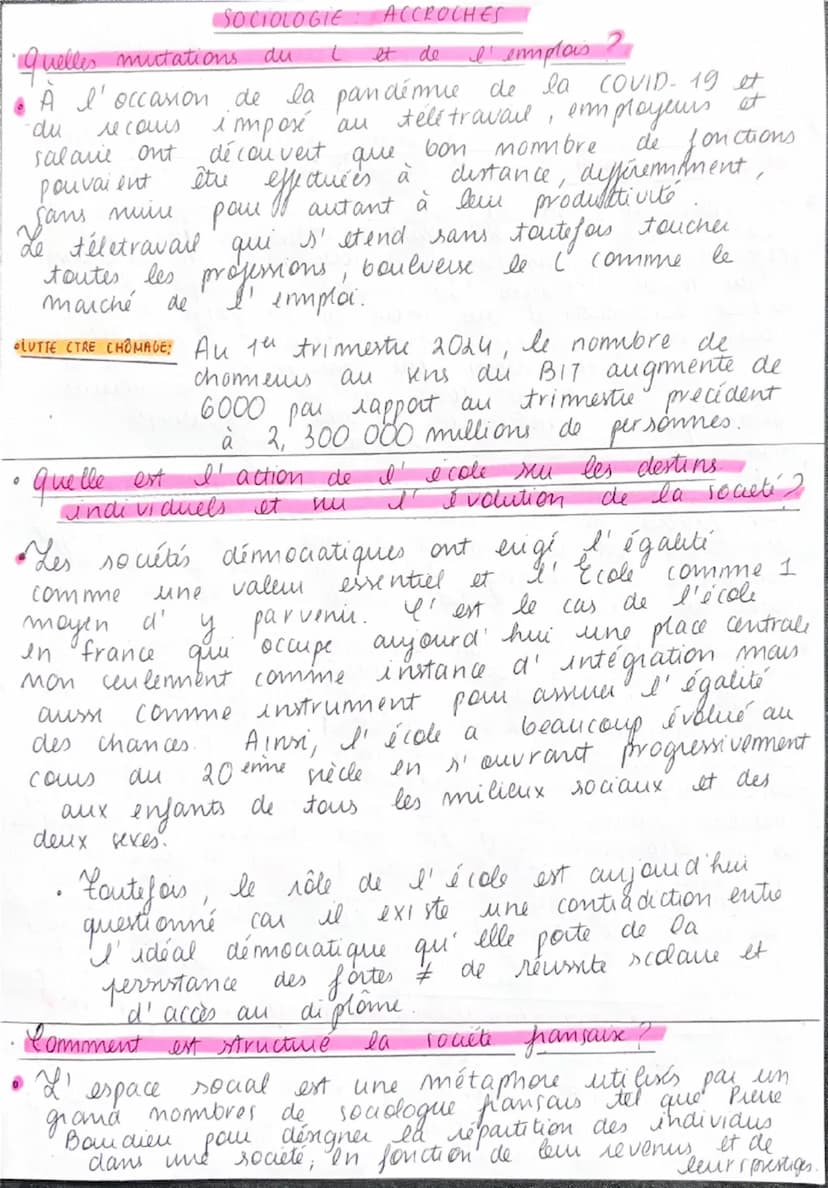 SOCIOLOGIE : ACCROCHES
Quelles mutations du L et de l'emplois ?
À l'occasion de la pandémie de la COVID-19 et
du recours imposé au télétravail, employeurs et
salarié ont découvert que bon nombre de fonctions
pouvaient être effectuées à distance, différemment,
sans nuire pour autant à leur productivité.
Le télétravail qui s'étend sans toutefois toucher
toutes les professions, boulverse le L comme le
marché de l'emploi.
LUTTE CTRE CHÔMAGE: Au 1er trimestre 2024, le nombre de
chomeurs au sens du BIT augmente de
6000 par rapport au trimestre précédent
à 2, 300 000 millions de personnes.
Quelle est l'action de l'école sur les destins
individuels et sur l'évolution de la société ?
Les sociétés démocratiques ont érigé l'égalité
comme une valeur essentiel et l'École comme 1
moyen d'y parvenir. C'est le cas de l'école
en france qui occupe aujourd'hui une place centrale
non seulement comme instance d'intégration mais
aussi comme instrument pour assurer l'égalité
des chances. Ainsi, l'école a beaucoup évolué au
cours du 20ème siècle en s'ouvrant progressivement
aux enfants de tous les milieux sociaux et des
deux sexes.
Toutefois, le rôle de l'école est aujourd'hui
questionné car il existe une contradiction entre
l'idéal démocratique qu'elle porte de la
persistance des fortes ≠ de réussite scolaire et
d'accès au diplôme.
Comment est structuré la société française ?
L'espace social est une métaphore utilisés par un
grand nombres de sociologue français tel que Pierre
Bourdieu pour désigner la répartition des individus
dans une société, en fonction de leur revenus et de
leurs prestiges.